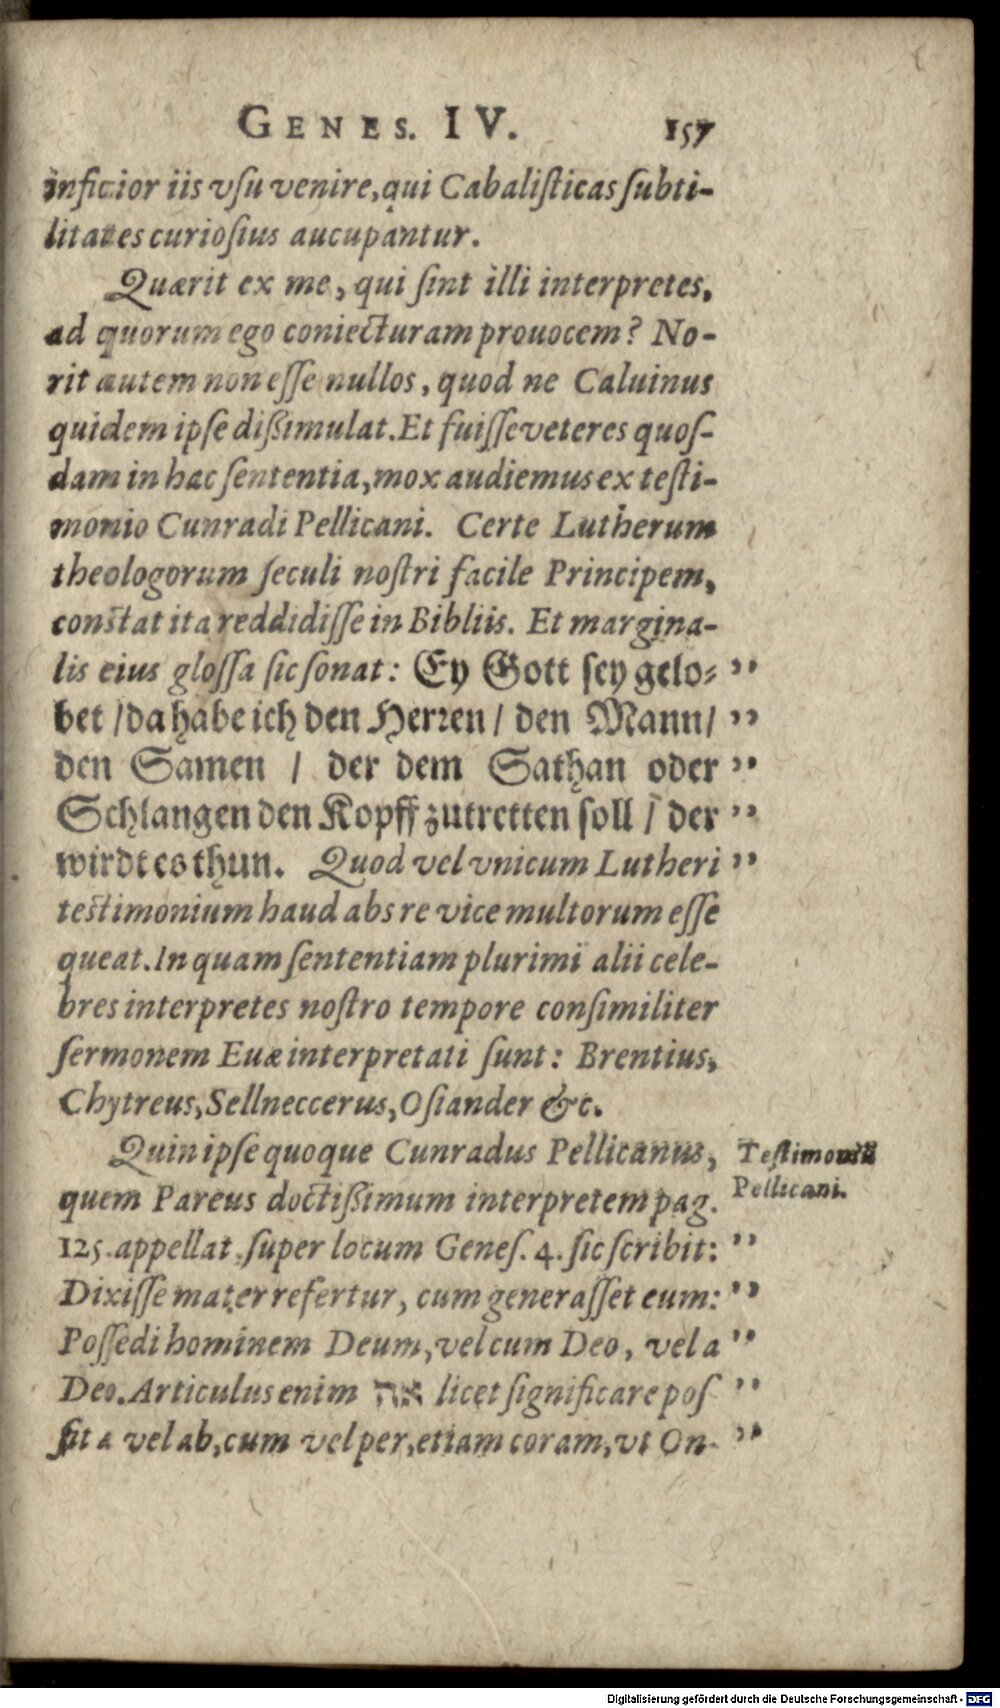 GENES. IV. 157
inficior iis vsu venire, qui Cabalisticas subti-
litates curiosius aucupantur.
Quærit ex me, qui sint illi interpretes,
ad quorum ego coniecturam prouocem? No-
rit autem non esse nullos, quod ne Caluinus
quidem ipse dißimulat. Et fuisse veteres quos-
dam in hac sententia, mox audiemus ex testi-
monio Cunradi Pellicani. Certe Lutherum
theologorum seculi nostri facile Principem,
constat ita reddidisse in Bibliis. Et margina-
lis eius glossa sic sonat: Ey Gott sey gelo- ”
bet / da habe ich den Herren / den Mann / ”
den Samen / der dem Sathan oder ”
Schlangen den Kopff zutretten soll / der ”
wirdt es thun. Quod vel vnicum Lutheri ”
testimonium haud abs re vice multorum esse
queat. In quam sententiam plurimi alii cele-
bres interpretes nostro tempore consimiliter
sermonem Euæ interpretati sunt: Brentius,
Chytreus, Sellneccerus, Osiander &c.
Quin ipse quoque Cunradus Pellicanus,
Testimoniū
Pellicani.
quem Pareus doctißimum interpretem pag.
125. appellat, super locum Genes. 4. sic scribit: ”
Dixisse mater refertur, cum generasset eum: ”
Possedi hominem Deum, vel cum Deo, vel a ”
Deo. Articulus enim את licet significare pos ”
sit a vel ab, cum vel per, etiam coram, vt On- ”
Digitalisierung gefördert durch die Deutsche Forschungsgemeinschaft - DFG